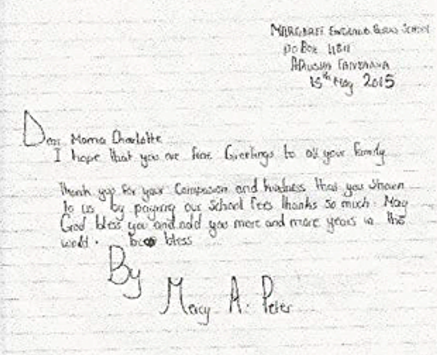 MARGARET ENGLAND GIRLS SCHOOL
P.O BOX 11811
ARUSHA TANZANIA
15th May 2015
Dear Mama Charlotte
I hope that you are fine Greetings to all your family
Thank you for your Compassion and kindness that you shown
to us by paying our School fees thanks so much. May
God bless you and add you more and more years in this
world. bless
By
Mercy A. Peter